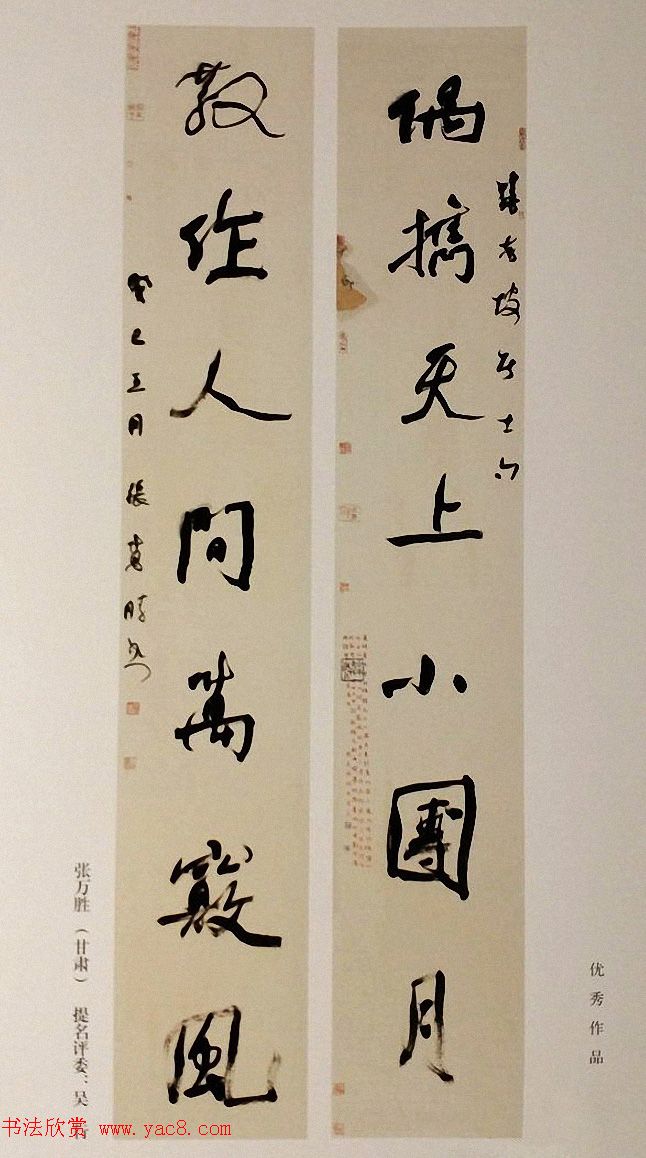 坡居士句
偶攜天上小團月
散作人間萬竅風
癸巳五月 張萬勝書
优秀作品
张万胜（甘肃） 提名评委：吴
书法欣赏 www.yac8.com